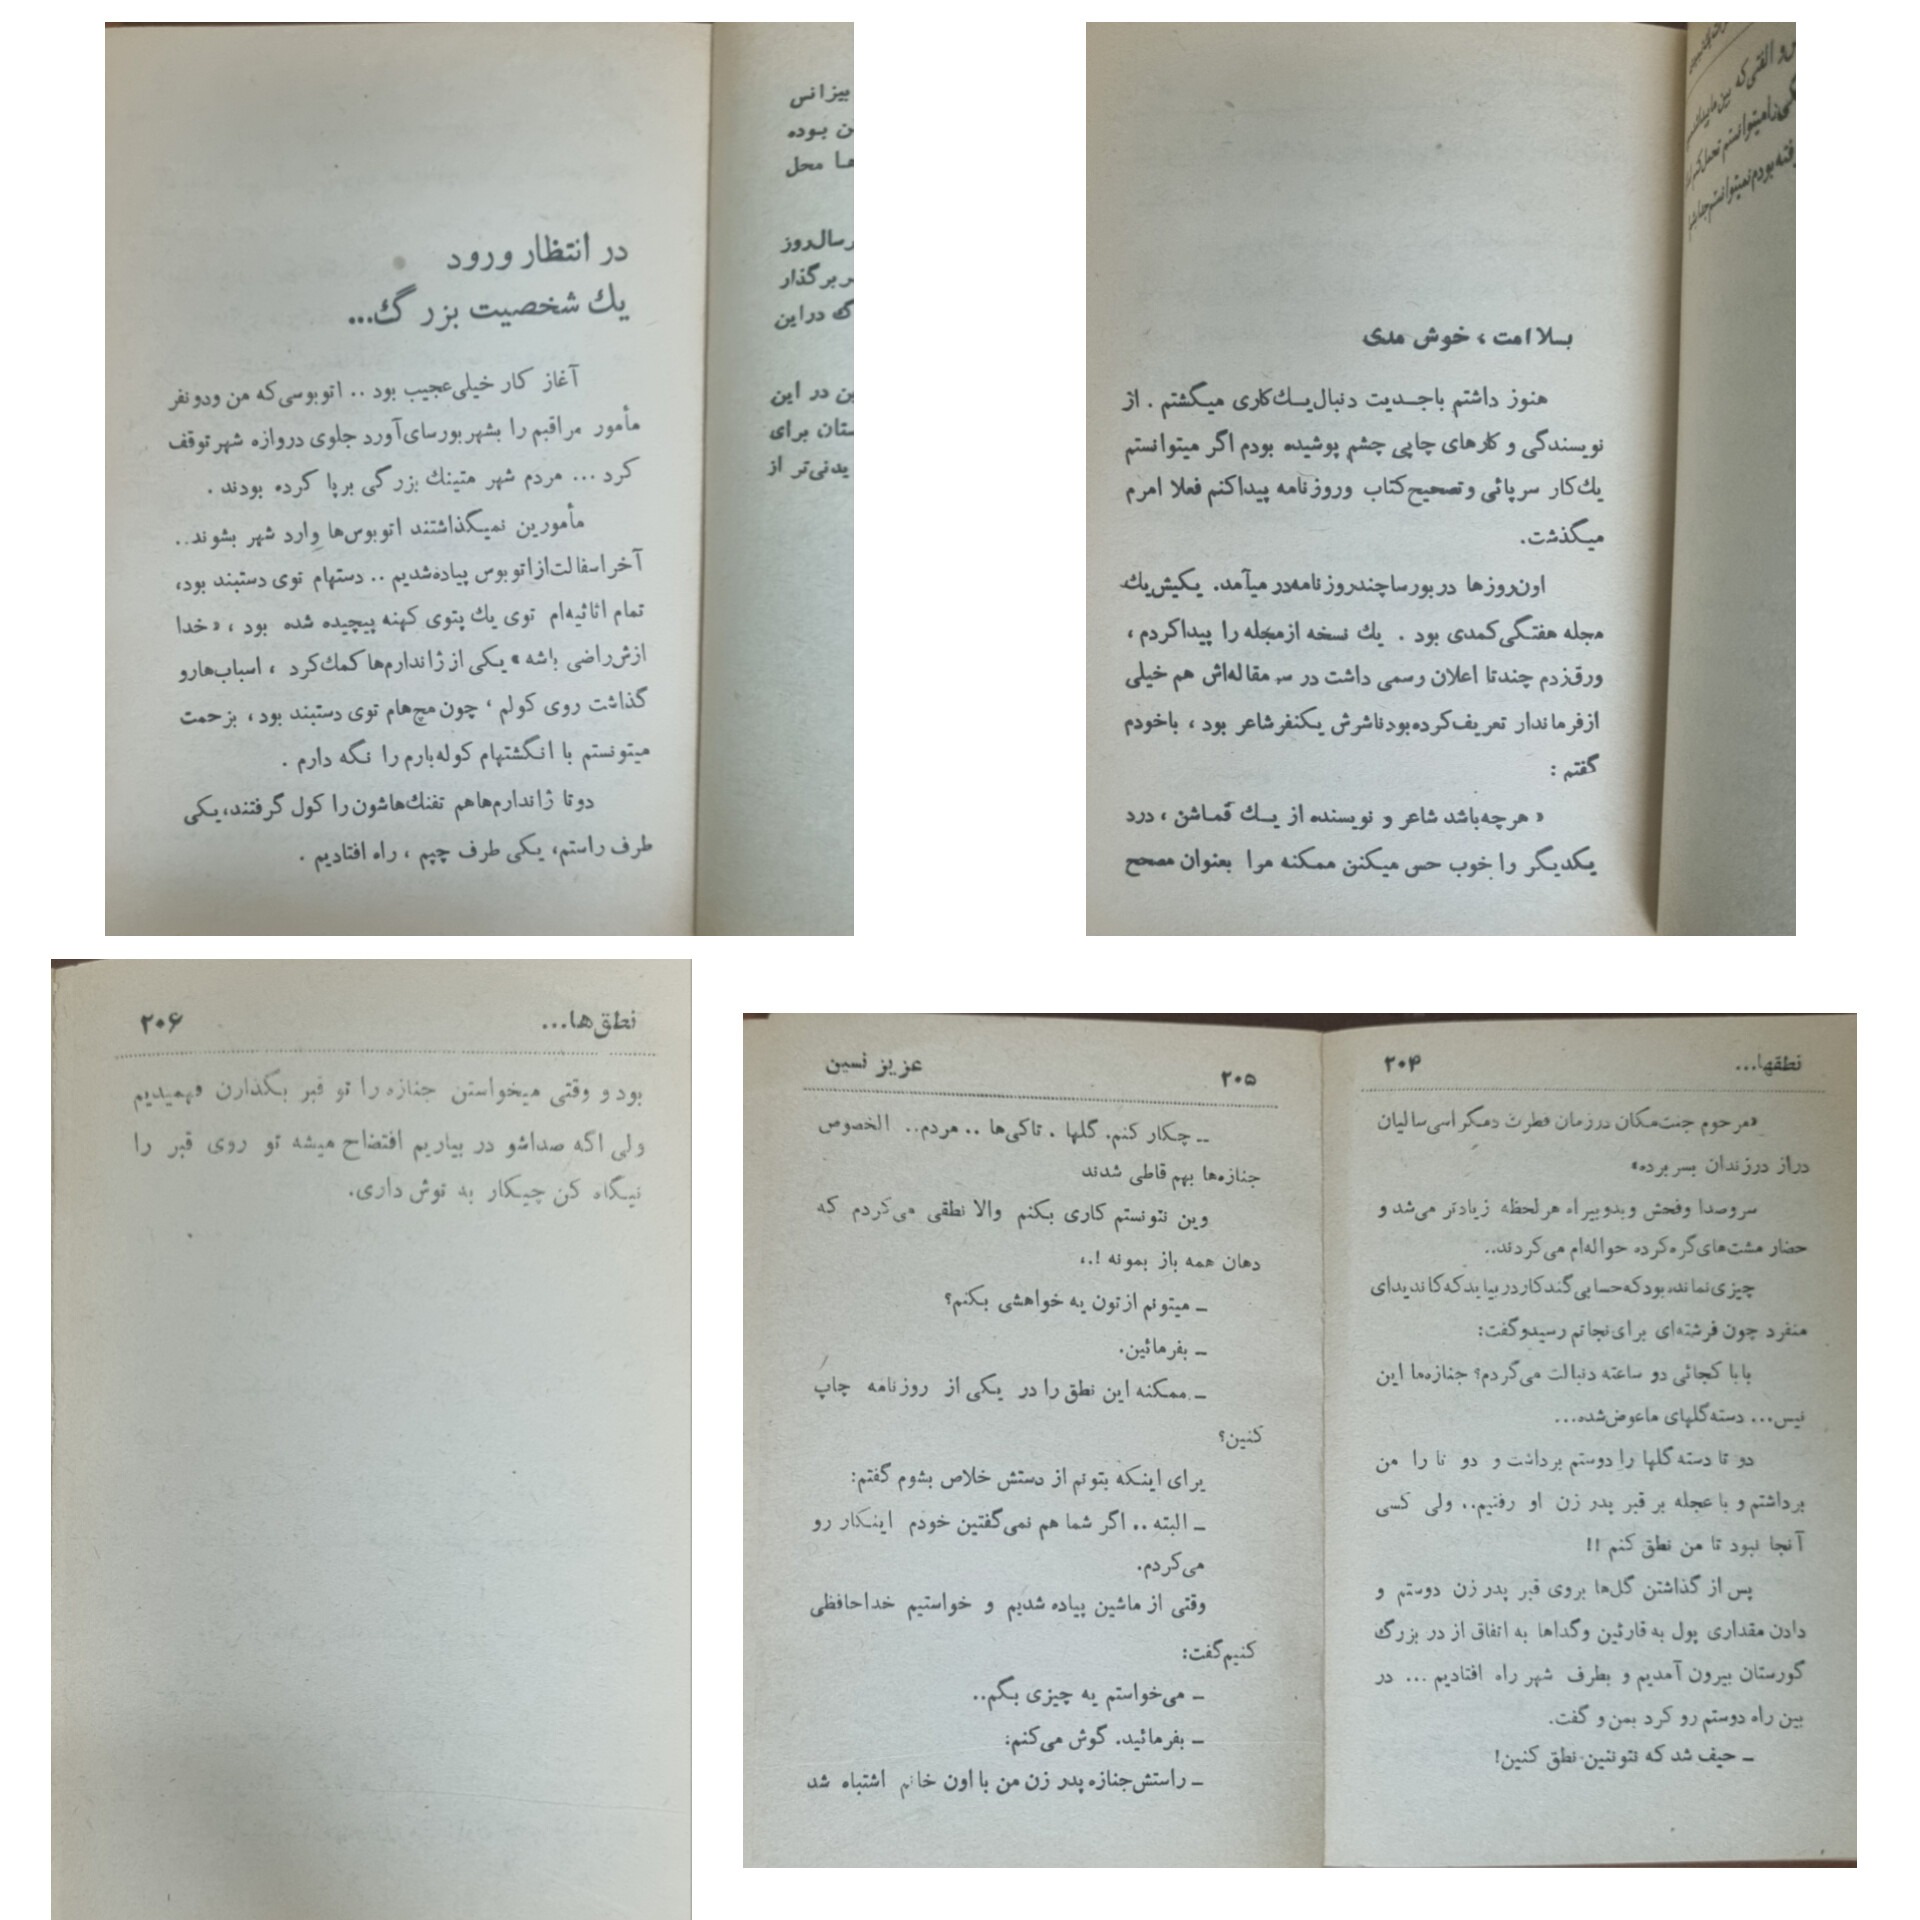 در انتظار ورود
یك شخصیت بزرگ...
آغاز کار خیلی‌عجیب بود .. اتوبوسی‌که من ودونفر
مأمور مراقبم را بشهر بورسای‌آورد جلوی دروازه شهر توقف
کرد ... مردم شهر متینك بزرگی برپا کرده بودند .
مأمورین نمیگذاشتند اتوبوس‌ها وارد شهر بشوند..
آخر اسفالت‌از اتوبوس پیاده‌شدیم .. دستهام توی دستبند بود،
تمام اثاثیه‌ام توی یك پتوی کهنه پیچیده شده بود ، «خدا
ازش‌راضی باشه» یکی از ژاندارم‌ها کمك‌کرد ، اسباب‌هارو
گذاشت روی کولم ، چون مچ‌هام توی دستبند بود، بزحمت
میتونستم با انگشتهام کوله‌بارم را نگه دارم .
دوتا ژاندارم‌هاهم تفنك‌هاشون‌را کول گرفتند،یکی
طرف راستم، یکی طرف چپم ، راه افتادیم .
بیزانس
ن بوده
ها محل
رسال‌روز
ر برگذار
گ دراین
ین در این
ستان برای
یدنی‌تر از
بسلاامت ، خوش مدی
هنوز داشتم باجدیت دنبال‌یك‌کاری میگشتم . از
نویسندگی و کارهای چاپی چشم پوشیده بودم اگر میتوانستم
یك‌کار سرپائی وتصحیح‌کتاب وروزنامه پیداکنم فعلا امرم
میگذشت.
اون‌روزها دربورساچندروزنامه‌در میآمد. یکیش‌یك
مجله هفتگی‌کمدی بود . یك نسخه ازمجله را پیداکردم ،
ورق‌زدم چندتا اعلان رسمی داشت در سر مقاله‌اش هم خیلی
ازفرماندار تعریف‌کرده‌بودناشرش یکنفرشاعر بود ، باخودم
گفتم :
« هرچه‌باشد شاعر و نویسنده از یك قماشن ، درد
یکدیگر را خوب حس میکنن ممکنه مرا بعنوان مصحح
و الفتی‌که بین ما
نطق‌ها... ۲۰۶
بود و وقتی میخواستن جنازه را تو قبر بگذارن فهمیدیم
ولی اگه صداشو در بیاریم افتضاح میشه تو روی قبر را
نیگاه کن چیکار به توش داری.
نطقها... ۲۰۴
«مرحوم جنت‌مکان درزمان فطرت دمکراسی‌سالیان
دراز درزندان بسر برده»
سروصدا وفحش وبدوبیراه هرلحظه زیادتر می‌شد و
حضار مشت‌های‌گره‌کرده حواله‌ام می‌کردند..
چیزی‌نمانده‌بودکه‌حسابی‌گندکاردربیایدکه‌کاندیدای
منفرد چون فرشته‌ای برای‌نجاتم رسیدوگفت:
بابا کجائی دو ساعته دنبالت می‌گردم؟ جنازه‌ما این
نیس... دسته‌گلهای ماعوض‌شده...
دو تا دسته گلها را دوستم برداشت و دو تا را من
برداشتم و با عجله بر قبر پدر زن او رفتیم.. ولی کسی
آنجا نبود تا من نطق کنم !!
پس از گذاشتن گل‌ها بروی قبر پدر زن دوستم و
دادن مقداری پول به قارئین وگداها به اتفاق از در بزرگ
گورستان بیرون آمدیم و بطرف شهر راه افتادیم ... در
بین راه دوستم رو کرد بمن و گفت.
ـ حیف شد که نتونتین نطق کنین!
۲۰۵ عزیز نسین
ـ چکار کنم. گلها . تاکی‌ها .. مردم.. الخصوص
جنازه‌ها بهم قاطی شدند
وین نتونستم کاری بکنم والا نطقی می‌کردم که
دهان همه باز بمونه !.،
ـ میتونم ازتون یه خواهشی بکنم؟
ـ بفرمائین.
ـ ممکنه این نطق را در یکی از روزنامه چاپ
کنین؟
برای اینکه بتونم از دستش خلاص بشوم گفتم:
ـ البته .. اگر شما هم نمی‌گفتین خودم اینکار رو
می‌کردم.
وقتی از ماشین پیاده شدیم و خواستیم خداحافظی
کنیم‌گفت:
ـ می‌خواستم یه چیزی بگم..
ـ بفرمائید. گوش می‌کنم:
ـ راستش‌جنازه پدر زن من با اون خانم اشتباه شد